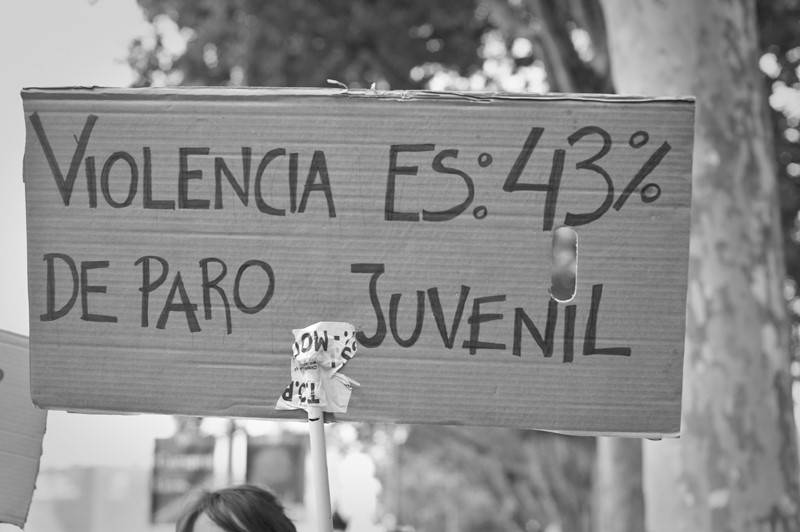 VIOLENCIA ES: 43%
DE PARO JUVENIL